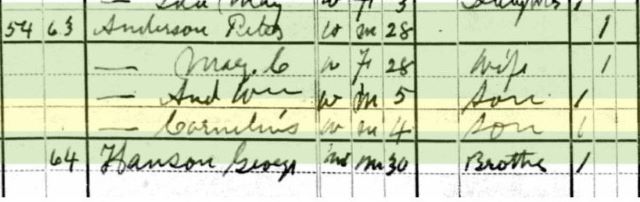 May W F 3 1
54 63 Anderson Peter W M 28 1
— May. C W F 28 Wife 1
— And W M 5 Son 1
— Cornelius W M 4 Son 1
64 Hanson George M 30 Brother 1